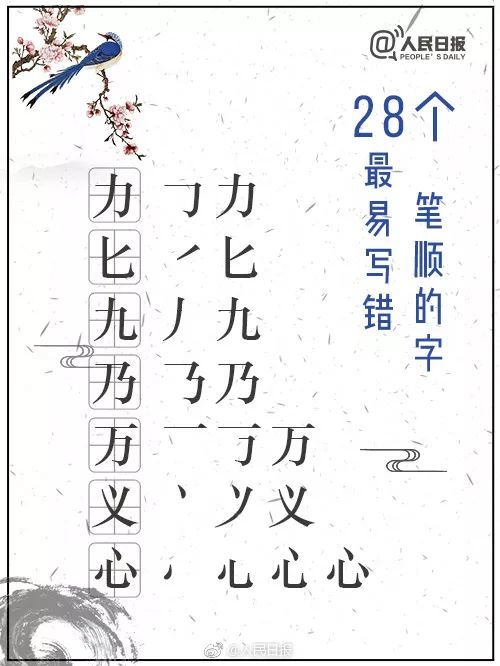 @人民日报
PEOPLE'S DAILY
28个
最易写错
笔顺的字
力 ㇆ 力
匕 ㇒ 匕
九 丿 九
乃 ㇋ 乃
万 一 丆 万
义 丶 丷 义
心 丶 心 心
@人民日报